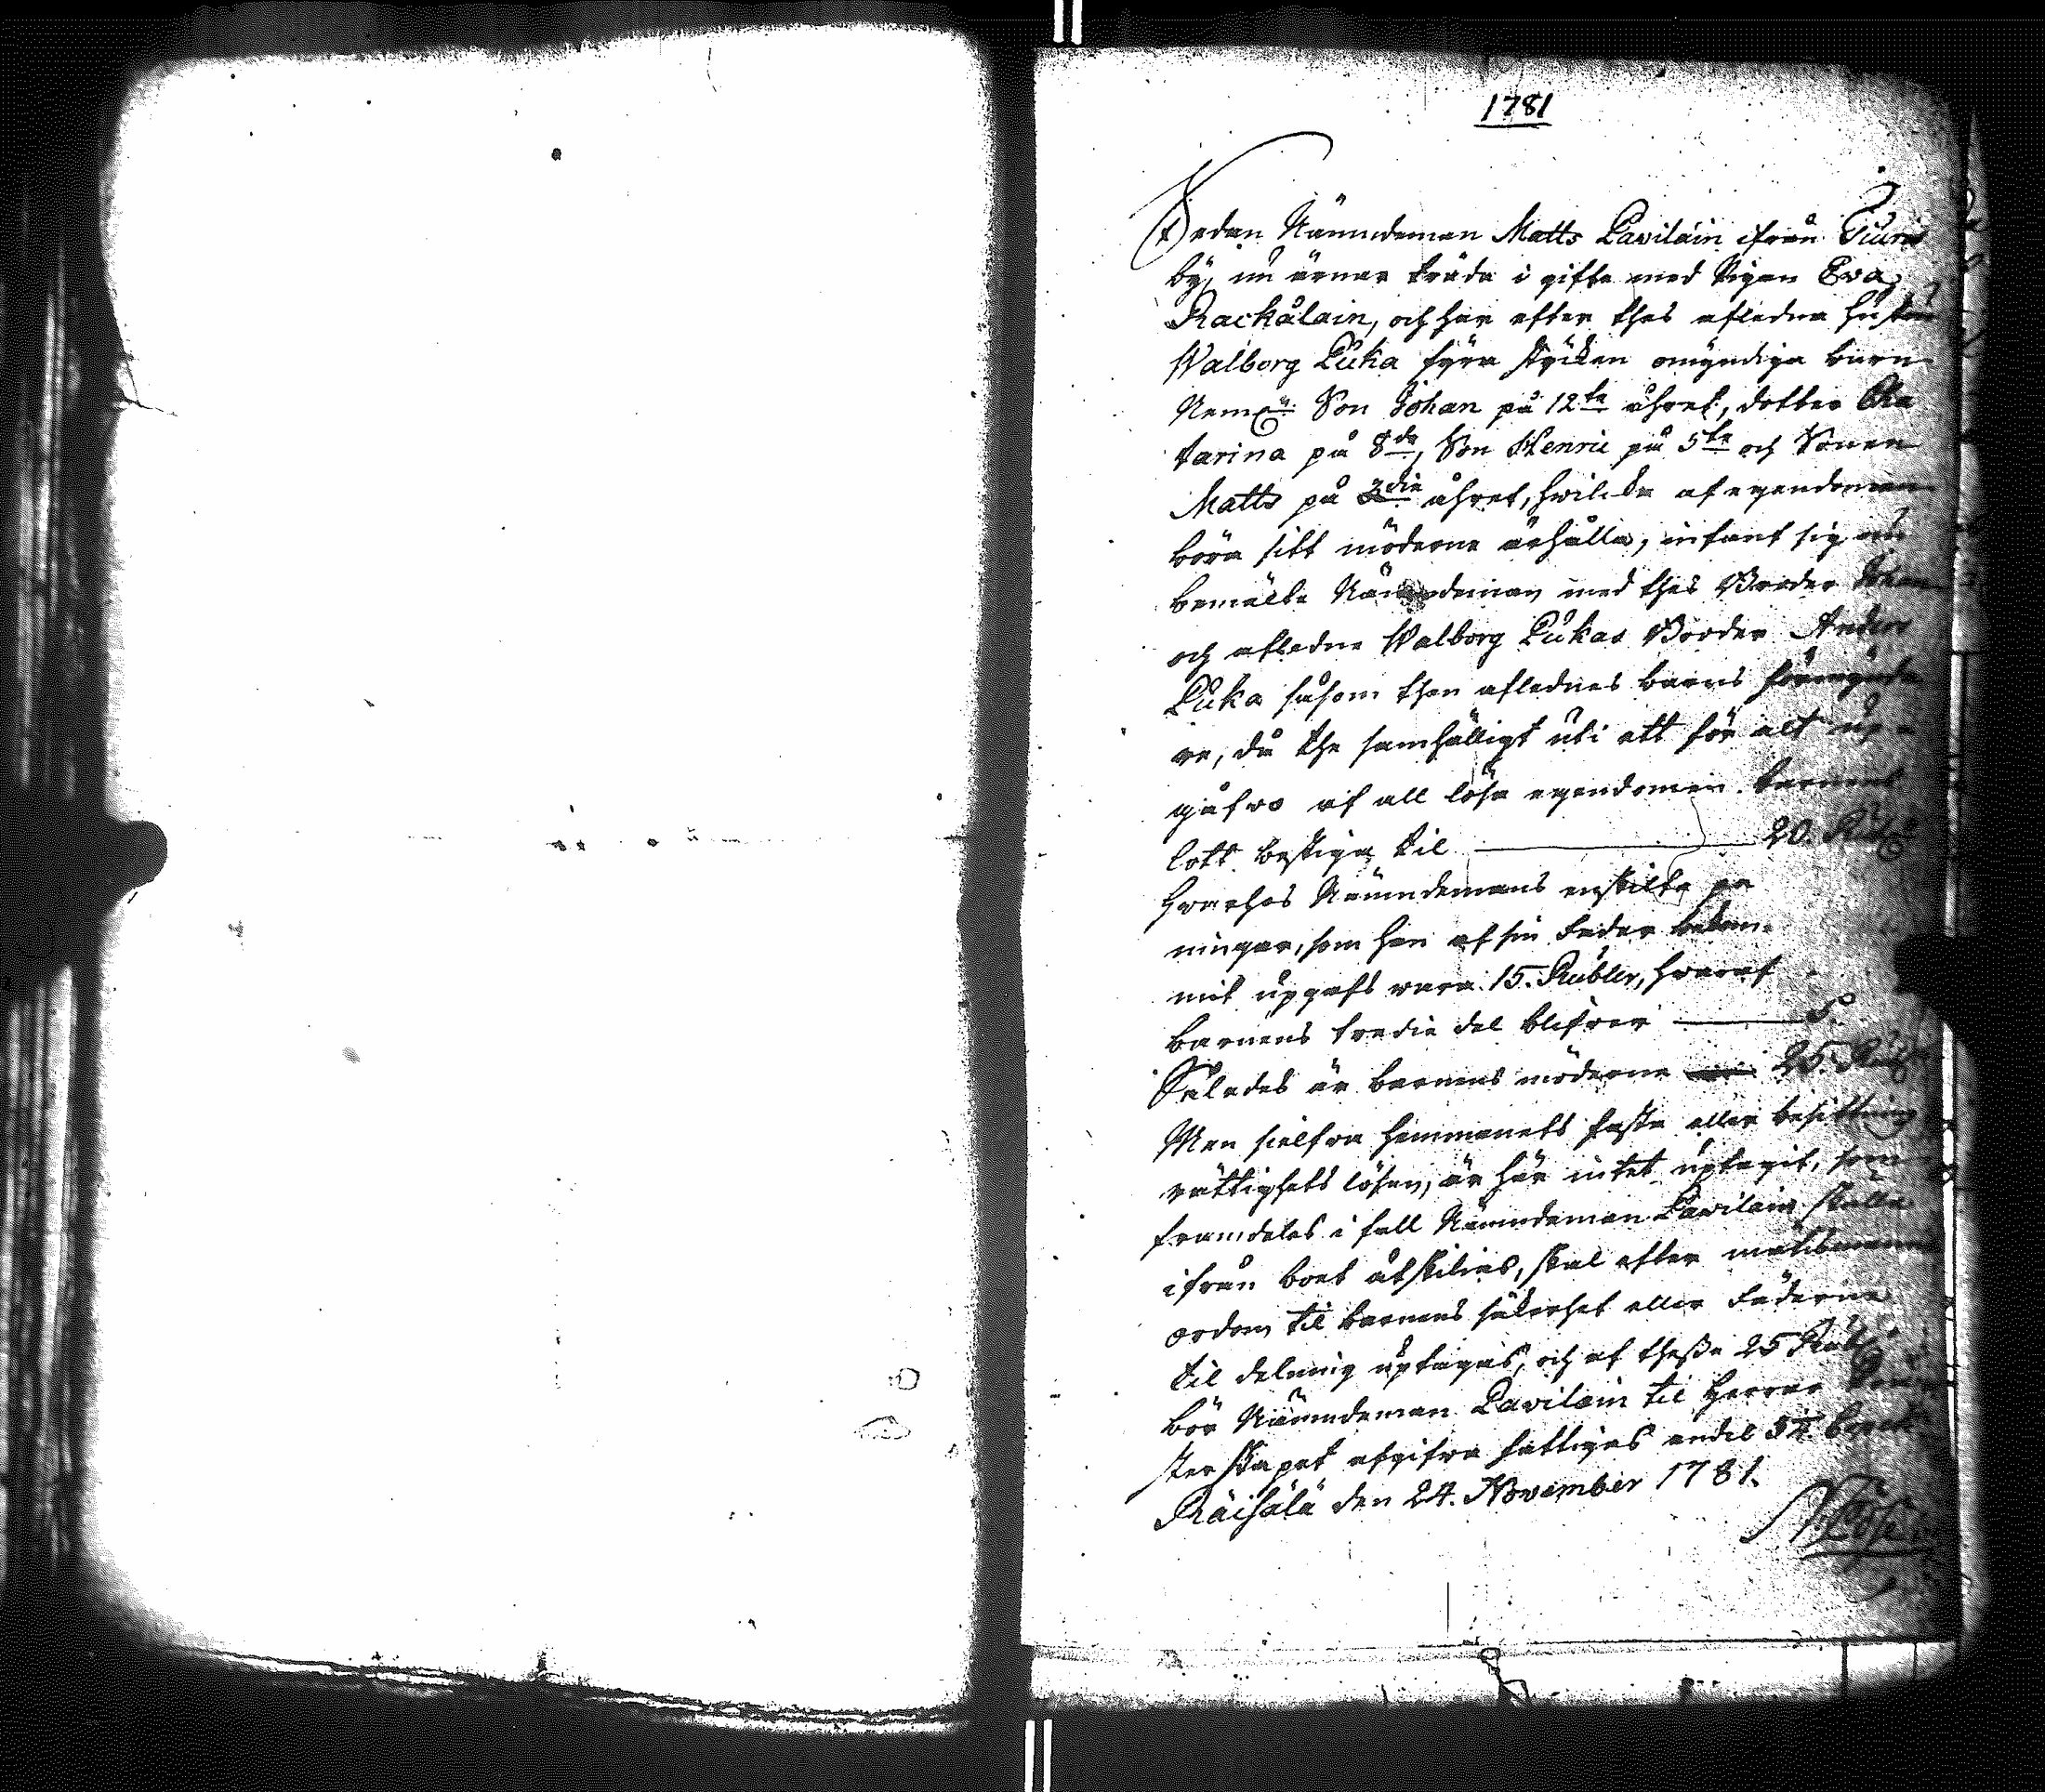 1781
Sedan Nämndeman Matts Pavilain ifrån Tiuris
by nu ärnar träda i gifte med Pigan Eva
Rackålain, och har efter thes afledna hustru
Walborg Puka fyra stycken omyndiga barn
Neml. Son Johan på 12te åhret, dotter Ca
tarina på 8de, Son Henric på 5te och Sonen
Matts på 3die åhret, hvilcka af egendomen
böra sitt möderne ärhålla, infant sig nu
bemälte Nämndeman med thes Broder Johan
och afledne Walborg Pukas Broder Anders
Puka såsom then aflednes barns förmynda
re, då the samhälligt uti ett för alt up
gåfvo af all lösa egendomen barnens
lott bestiga til 20. Rub
Hvarhos Nämndemans enskilta pä
ningar, som han af sin Fader bekom-
mit upgafs vara 15. Rubler, hvaraf
barnens tredie del blifver 5.
Således är barnens möderne 25. Rub
Men sielfva hemmanets fasta eller besittning
rättighets lösen, är här intet uptagit, som
framdeles i fall Nämndeman Pavilain skulle
ifrån boet åtskilias, skal efter mätismanna
ordom til barnens säkerhet eller Fäderne
til delning uptagas, och af thessa 25 Rub
bör Nämndeman Pavilain til Herrar
sterskapet afgifva fattigas andel
Räisälä den 24. November 1781.